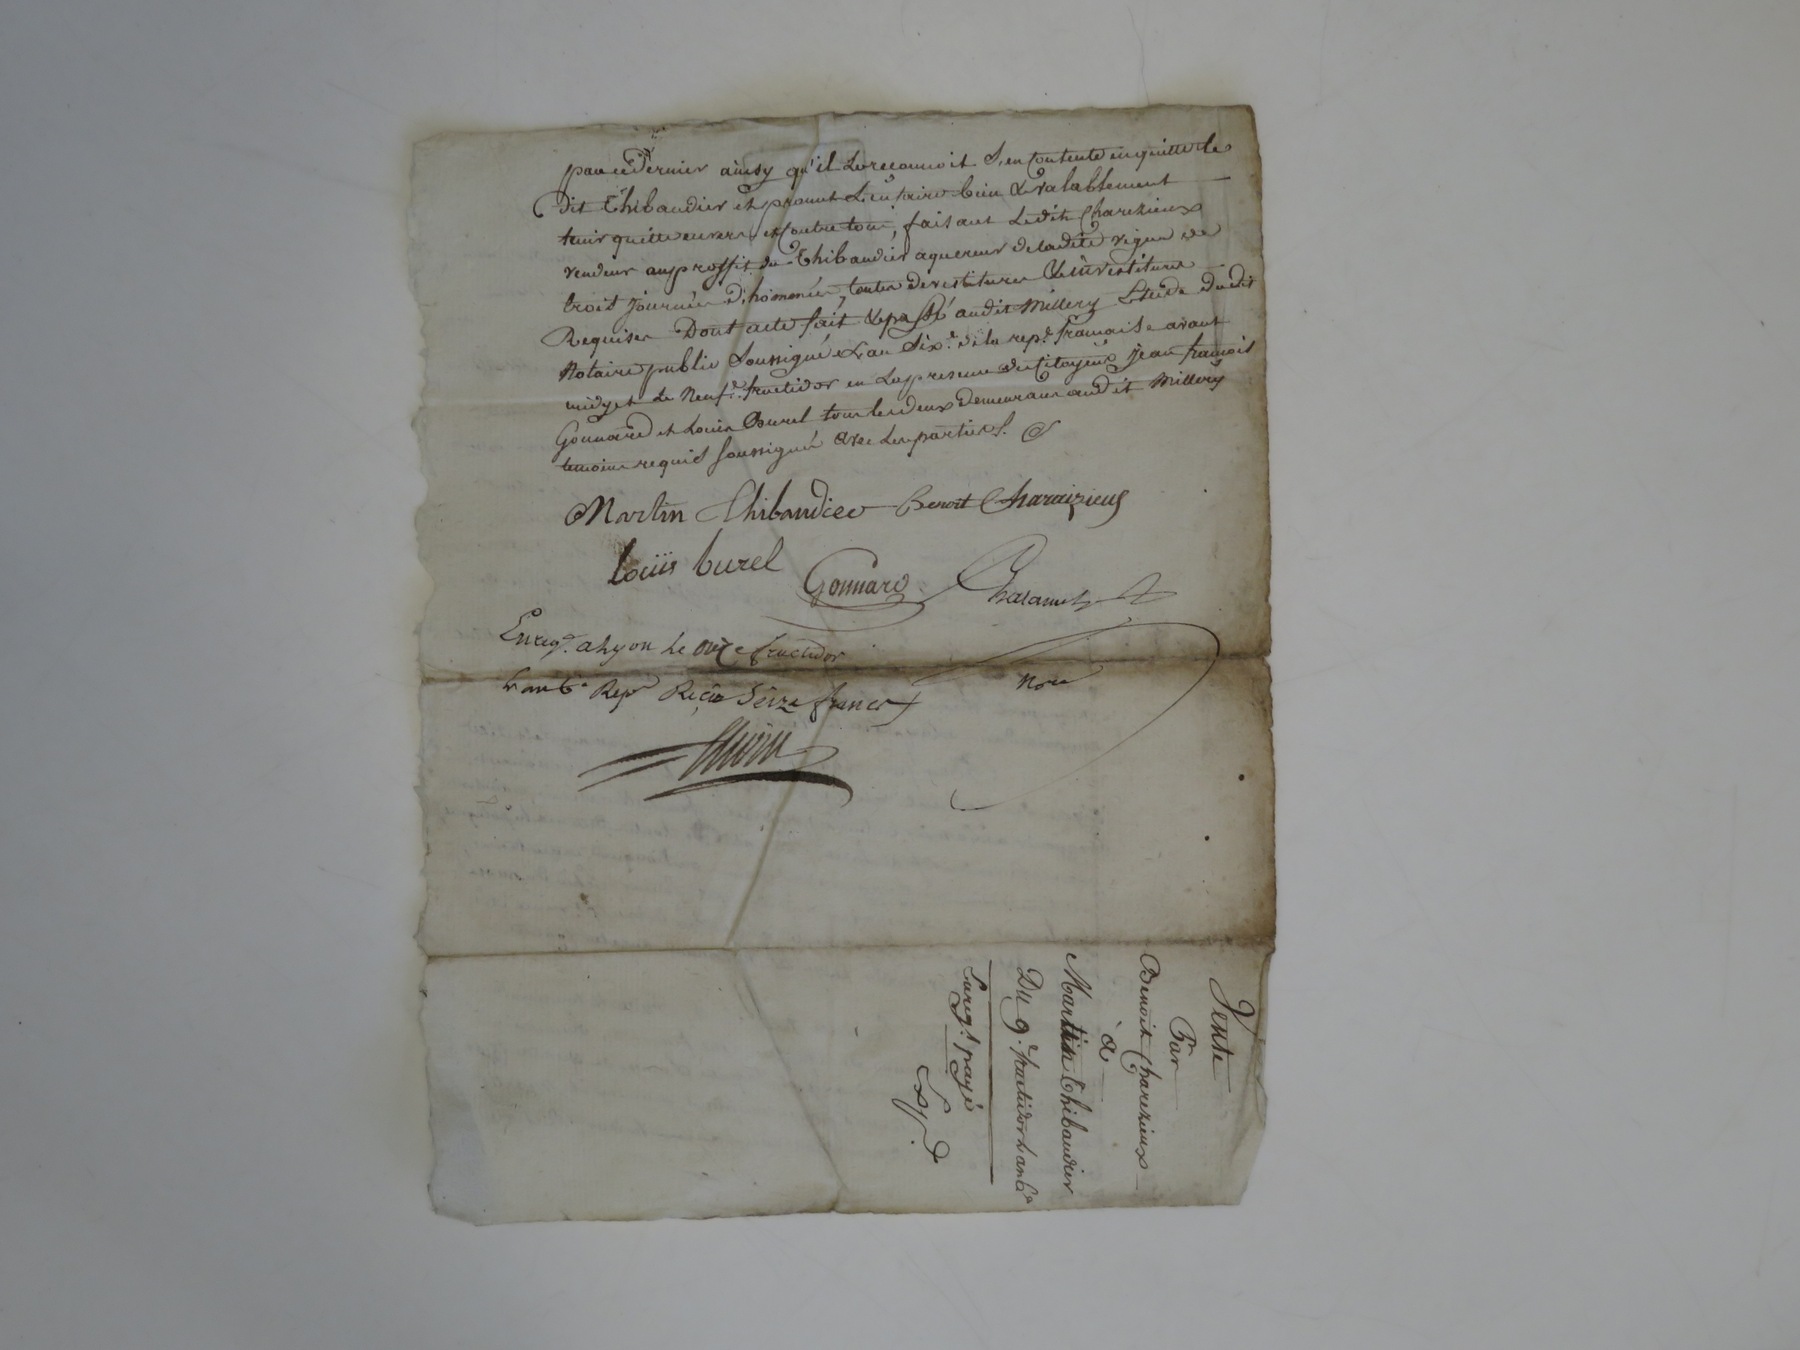 par ce dernier ainsy qu'il le reconnoit s'en contente en quitte le
dit Thibaudier et promet l'en faire bien & valablement
tenir quitte envers et contre tous, faisant ledit Charezieux
vendeur au proffit du Thibaudier aquereur de ladite vigne de
trois journées d'homemées, toutes devestitures & investitures
Requises Dont acte fait & passé audit Millery Etude dudit
Notaire public soussigné L'an six.e de la rep.e francaise avant
midy et le Neuf.e fructidor en la presence des Citoyens Jean francois
Gonnard et Louis Burel tous les deux demeurans audit Millery
temoins requis soussignés avec les parties.
Martin Thibaudier Benoit Charaizieux
Louis burel Gonnard
Enreg.é a Lyon le onze fructidor
L'an 6.e Rep.e Reçu Seize francs
Nore
Vente
Par
Benoit Charezieux
à
Martin Thibaudier
Du 9.e fructidor L'an 6.e
Enreg.t payé